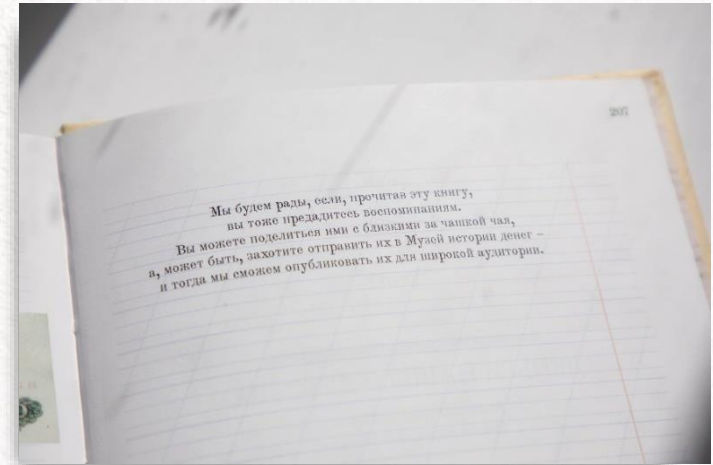 207
Мы будем рады, если, прочитав эту книгу,
вы тоже предадитесь воспоминаниям.
Вы можете поделиться ими с близкими за чашкой чая,
а, может быть, захотите отправить их в Музей истории денег –
и тогда мы сможем опубликовать их для широкой аудитории.